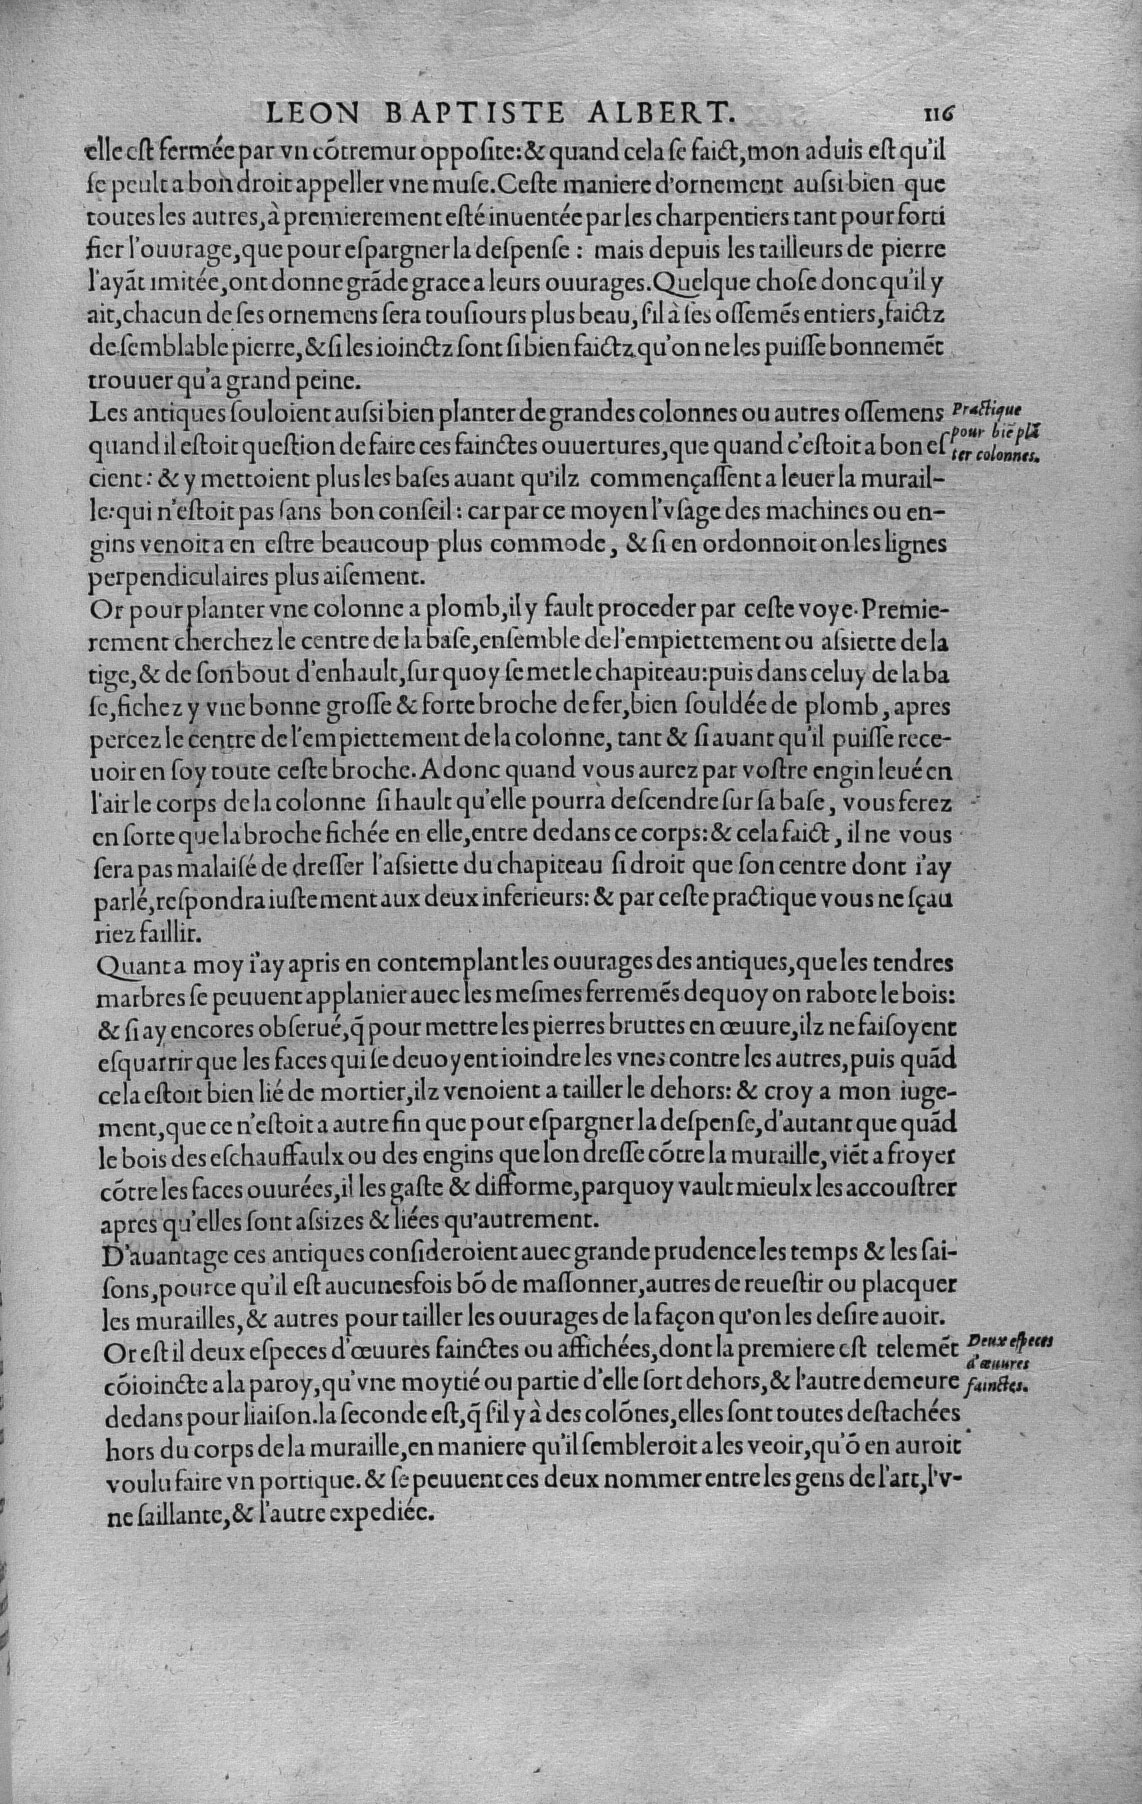 LEON BAPTISTE ALBERT. 116
elle est fermée par vn cõtremur opposite: & quand cela se faict, mon aduis est qu'il
se peult a bon droit appeller vne muse. Ceste maniere d'ornement aussi bien que
toutes les autres, à premierement esté inuentée par les charpentiers tant pour forti
fier l'ouurage, que pour espargner la despense: mais depuis les tailleurs de pierre
l'ayãt imitée, ont donne grãde grace a leurs ouurages. Quelque chose donc qu'il y
ait, chacun de ses ornemens sera tousiours plus beau, s'il à ses ossemẽs entiers, faictz
de semblable pierre, & si les ioinctz sont si bien faictz qu'on ne les puisse bonnemẽt
trouuer qu'a grand peine.
Les antiques souloient aussi bien planter de grandes colonnes ou autres ossemens
Practique
pour biẽ plã
ter colonnes.
quand il estoit question de faire ces fainctes ouuertures, que quand c'estoit a bon es
cient: & y mettoient plus les bases auant qu'ilz commençassent a leuer la murail-
le: qui n'estoit pas sans bon conseil: car par ce moyen l'vsage des machines ou en-
gins venoit a en estre beaucoup plus commode, & si en ordonnoit on les lignes
perpendiculaires plus aisement.
Or pour planter vne colonne a plomb, il y fault proceder par ceste voye. Premie-
rement cherchez le centre de la base, ensemble de l'empiettement ou assiette de la
tige, & de son bout d'enhault, sur quoy se met le chapiteau: puis dans celuy de la ba
se, fichez y vne bonne grosse & forte broche de fer, bien souldée de plomb, apres
percez le centre de l'empiettement de la colonne, tant & si auant qu'il puisse rece-
uoir en soy toute ceste broche. Adonc quand vous aurez par vostre engin leué en
l'air le corps de la colonne si hault qu'elle pourra descendre sur sa base, vous ferez
en sorte que la broche fichée en elle, entre dedans ce corps: & cela faict, il ne vous
sera pas malaisé de dresser l'assiette du chapiteau si droit que son centre dont i'ay
parlé, respondra iustement aux deux inferieurs: & par ceste practique vous ne sçau
riez faillir.
Quant a moy i'ay apris en contemplant les ouurages des antiques, que les tendres
marbres se peuuent applanier auec les mesmes ferremẽs dequoy on rabote le bois:
& si ay encores obserué, q̃ pour mettre les pierres bruttes en œuure, ilz ne faisoyent
esquarrir que les faces qui se deuoyent ioindre les vnes contre les autres, puis quãd
cela estoit bien lié de mortier, ilz venoient a tailler le dehors: & croy a mon iuge-
ment, que ce n'estoit a autre fin que pour espargner la despense, d'autant que quãd
le bois des eschauffaulx ou des engins que lon dresse cõtre la muraille, viẽt a froyer
cõtre les faces ouurées, il les gaste & difforme, parquoy vault mieulx les accoustrer
apres qu'elles sont assizes & liées qu'autrement.
D'auantage ces antiques consideroient auec grande prudence les temps & les sai-
sons, pource qu'il est aucunesfois bõ de massonner, autres de reuestir ou placquer
les murailles, & autres pour tailler les ouurages de la façon qu'on les desire auoir.
Or est il deux especes d'œuures fainctes ou affichées, dont la premiere est telemẽt
Deux especes
d'œuures
fainctes.
cõioincte a la paroy, qu'vne moytié ou partie d'elle sort dehors, & l'autre demeure
dedans pour liaison. la seconde est, q̃ s'il y à des colõnes, elles sont toutes destachées
hors du corps de la muraille, en maniere qu'il sembleroit a les veoir, qu'õ en auroit
voulu faire vn portique. & se peuuent ces deux nommer entre les gens de l'art, l'v-
ne saillante, & l'autre expediée.